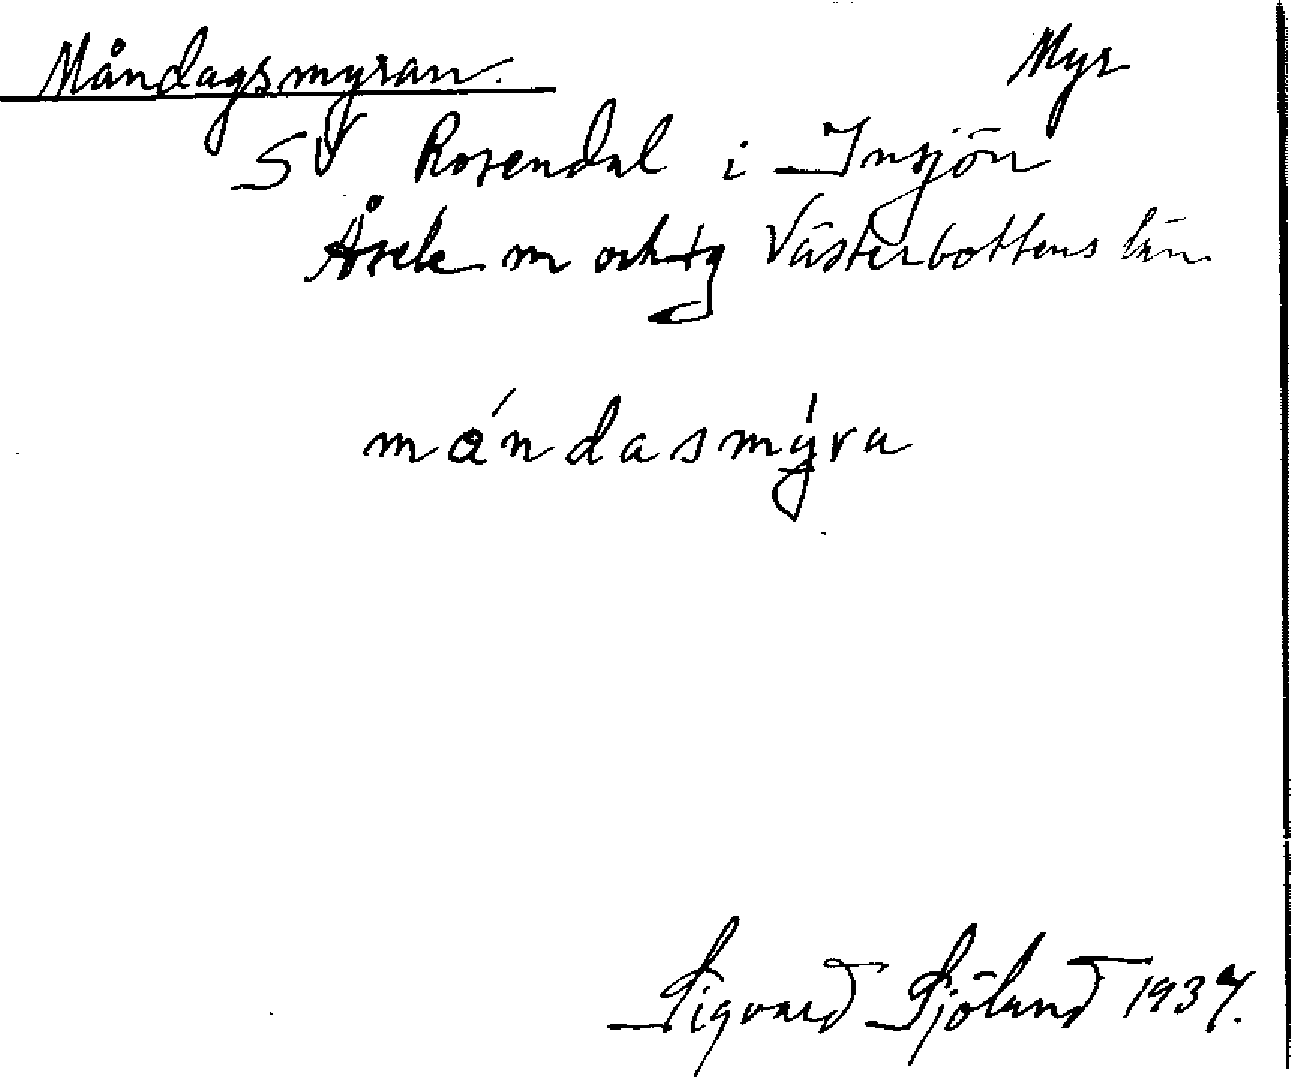 Måndagsmyran. Myr
SV Rosendal i Insjön
Åsele Västerbottens län
måndasmýra
Sigvard Sjölund 1937.